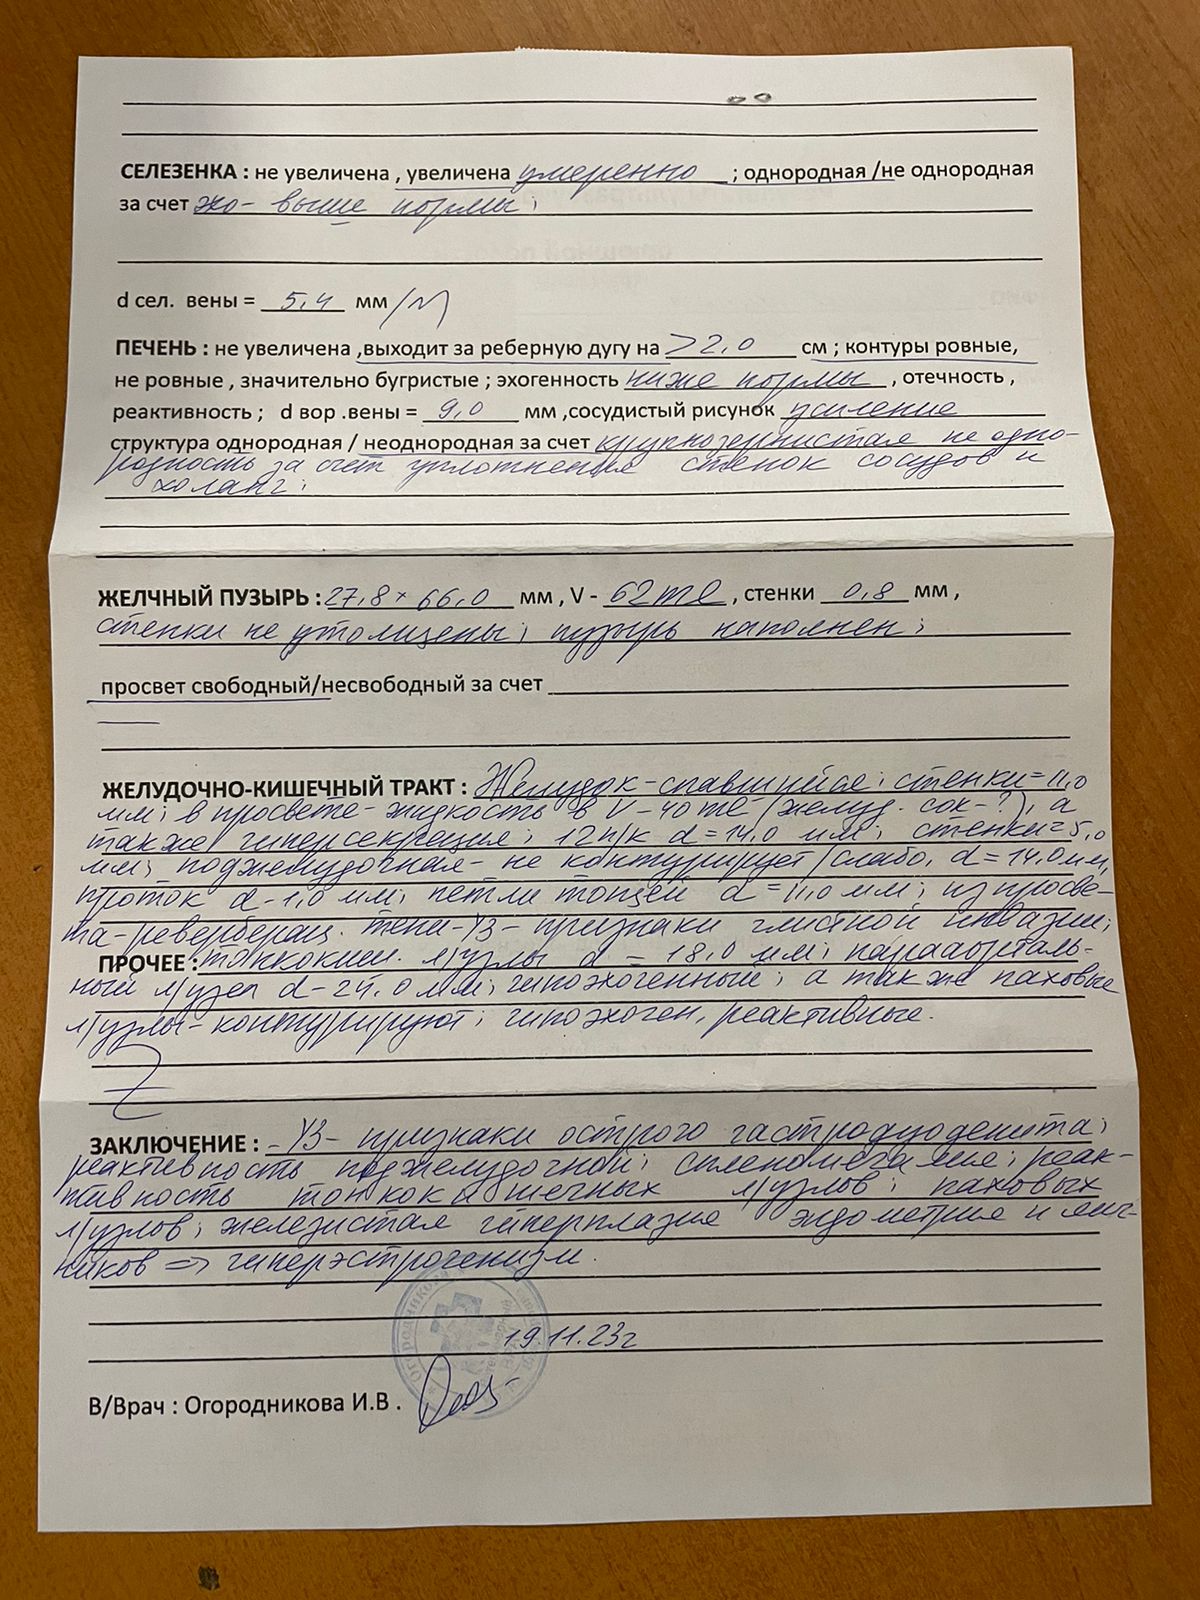 СЕЛЕЗЕНКА : не увеличена , увеличена умеренно ; однородная /не однородная
за счет эхо- выше нормы;
d сел. вены = 5,4 мм /N
ПЕЧЕНЬ : не увеличена ,выходит за реберную дугу на >2,0 см ; контуры ровные,
не ровные , значительно бугристые ; эхогенность ниже нормы , отечность ,
реактивность ; d вор .вены = 9,0 мм ,сосудистый рисунок усиление
структура однородная / неоднородная за счет крупнозернистая неодно-
родность за счет уплотнения стенок сосудов и
холанг;
ЖЕЛЧНЫЙ ПУЗЫРЬ : 27,8 × 66,0 мм , V - 62 ml , стенки 0,8 мм ,
стенки не утолщены; пузырь наполнен;
просвет свободный/несвободный за счет
ЖЕЛУДОЧНО-КИШЕЧНЫЙ ТРАКТ : Желудок - спавшийся; стенки = 11,0
мм; в просвете - жидкость в V - 40 ml (желуд. сок - ?), а
также гиперсекреция; 12п/к d = 14,0 мм; стенки = 5,0
мм; поджелудочная - не контурирует/слабо, d = 14,0 мм,
проток d - 1,0 мм; петли тощей d = 11,0 мм; из просве-
та - реверберац. тени - УЗ - признаки глистной инвазии;
ПРОЧЕЕ : тонкокиш. л/узлы d = 18,0 мм; парааорталь-
ный л/узел d - 24,0 мм; гипоэхогенный; а также паховые
л/узлы - контурируют; гипоэхоген, реактивные.
ЗАКЛЮЧЕНИЕ : УЗ - признаки острого гастродуоденита;
реактивность поджелудочной; спленомегалия; реак-
тивность тонкокишечных л/узлов; паховых
л/узлов; железистая гиперплазия эндометрия и яич-
ников => гиперэстрогенизм.
19.11.23г
В/Врач : Огородникова И.В .